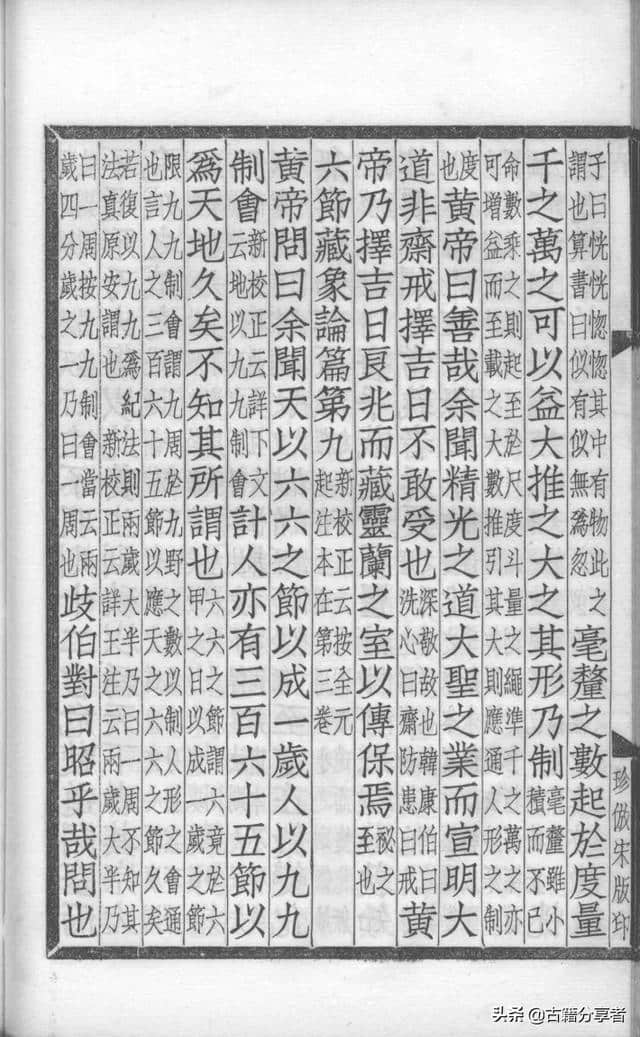 子曰恍恍惚惚其中有物此之謂也算書曰似有似無爲忽毫氂之數起於度量
千之萬之可以益大推之大之其形乃制毫釐雖小積而不已
命數乘之則起至於尺度斗量之繩準千之萬之亦
可增益而至載之大數推引其大則應通人形之制
度也黃帝曰善哉余聞精光之道大聖之業而宣明大
道非齋戒擇吉日不敢受也深敬故也韓康伯曰洗心曰齋防患曰戒黃
帝乃擇吉日良兆而藏靈蘭之室以傳保焉祕之至也
六節藏象論篇第九新校正云按全元起注本在第三卷
黃帝問曰余聞天以六六之節以成一歲人以九九
制會新校正云詳下文云地以九九制會計人亦有三百六十五節以
爲天地久矣不知其所謂也六六之節謂六竟於六甲之日以成一歲之節
限九九制會謂九周於九野之數以制人形之會通
也言人之三百六十五節以應天之六六之節久矣
若復以九九爲紀法則兩歲大半乃曰一周不知其
法真原安謂也新校正云詳王注云兩歲大半乃
曰一周按九九制會當云兩歲四分歲之一乃曰一周也歧伯對曰昭乎哉問也
珍倣宋版印
头条 @古籍分享者